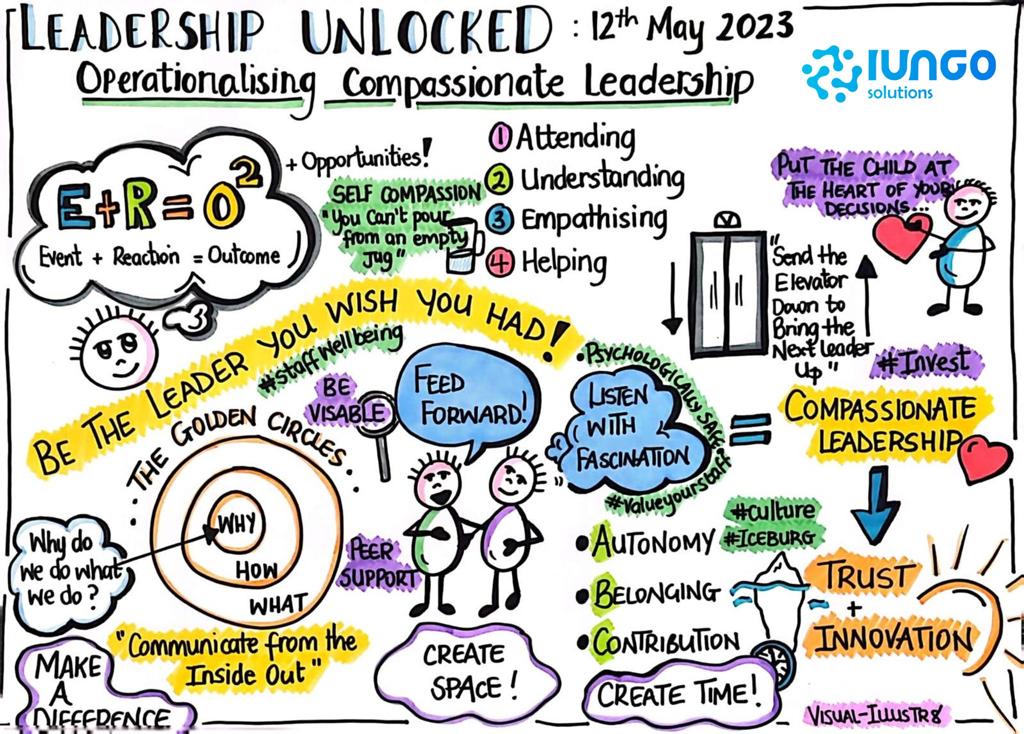 LEADERSHIP UNLOCKED : 12th May 2023
Operationalising Compassionate Leadership
IUNGO
solutions
E+R=O²
Event + Reaction = Outcome
+ Opportunities!
SELF COMPASSION
"You Can't pour
from an empty
Jug"
1 Attending
2 Understanding
3 Empathising
4 Helping
PUT THE CHILD AT
THE HEART OF YOUR
DECISIONS...
"Send the
Elevator
Down to
Bring the
Next leader
Up"
#Invest
BE THE LEADER YOU WISH YOU HAD!
#staffwellbeing
BE
VISABLE
FEED
FORWARD!
•PSYCHOLOGICALLY SAFE
LISTEN
WITH
FASCINATION
#Valueyourstaff
=
COMPASSIONATE
LEADERSHIP
...THE GOLDEN CIRCLES...
WHY
HOW
WHAT
Why do
we do what
we do?
"Communicate from the
Inside Out"
MAKE
A
DIFFERENCE
PEER
SUPPORT
CREATE
SPACE!
•AUTONOMY
•BELONGING
•CONTRIBUTION
#culture
#ICEBURG
CREATE TIME!
TRUST
+
INNOVATION
VISUAL-ILLUSTR8